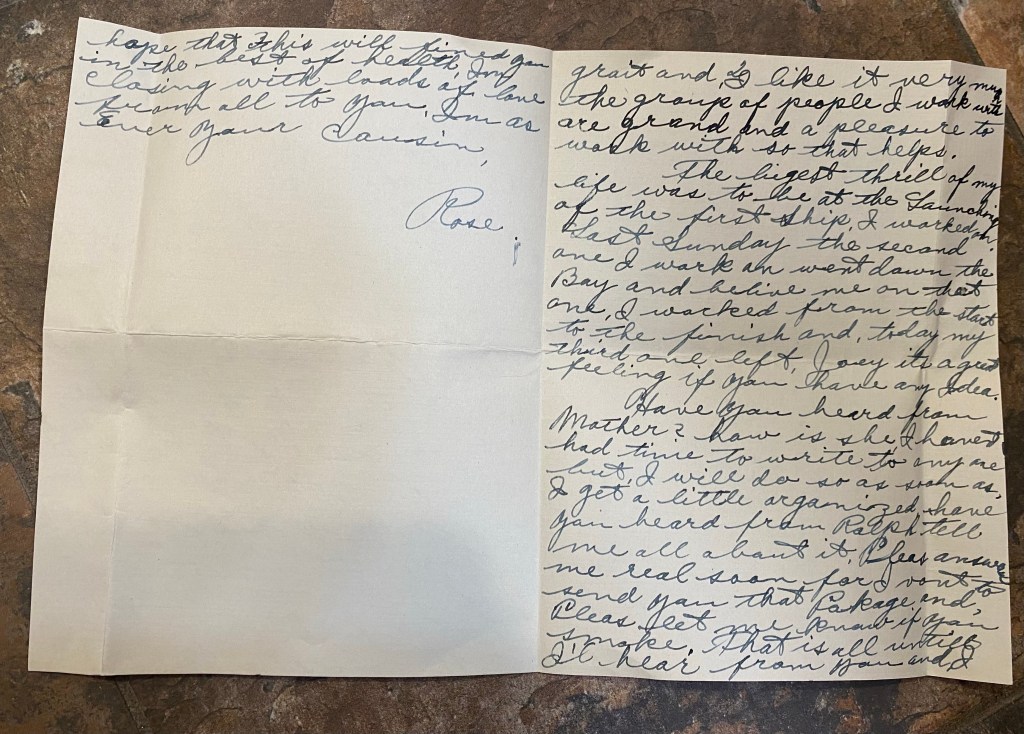 grait and, I like it very much
the group of people I work with
are grand and a pleasure to
work with so that helps.
The bigest thrill of my
life was to be at the Launching
of the first ship, I worked on.
Last Sunday the second
one I work on went down the
Bay and belive me on that
one, I worked from the start
to the finish and, today my
third one left, Joey its a great
feeling if you have any Idea.
Have you heard from
Mother? how is she I havent
had time to write to any one
but, I will do so as soon as,
I get a little organized, have
you heard from Ralph tell
me all about it, Pleas answer
me real soon for I vont to
send you that Pakage, and,
Pleas let me know if you
smoke. That is all untill
I'l hear from you and, I
hope that this will find you
in the best of health, I'm
closing with loads of love
from all to you, I'm as
Ever your Cousin,
Rose.